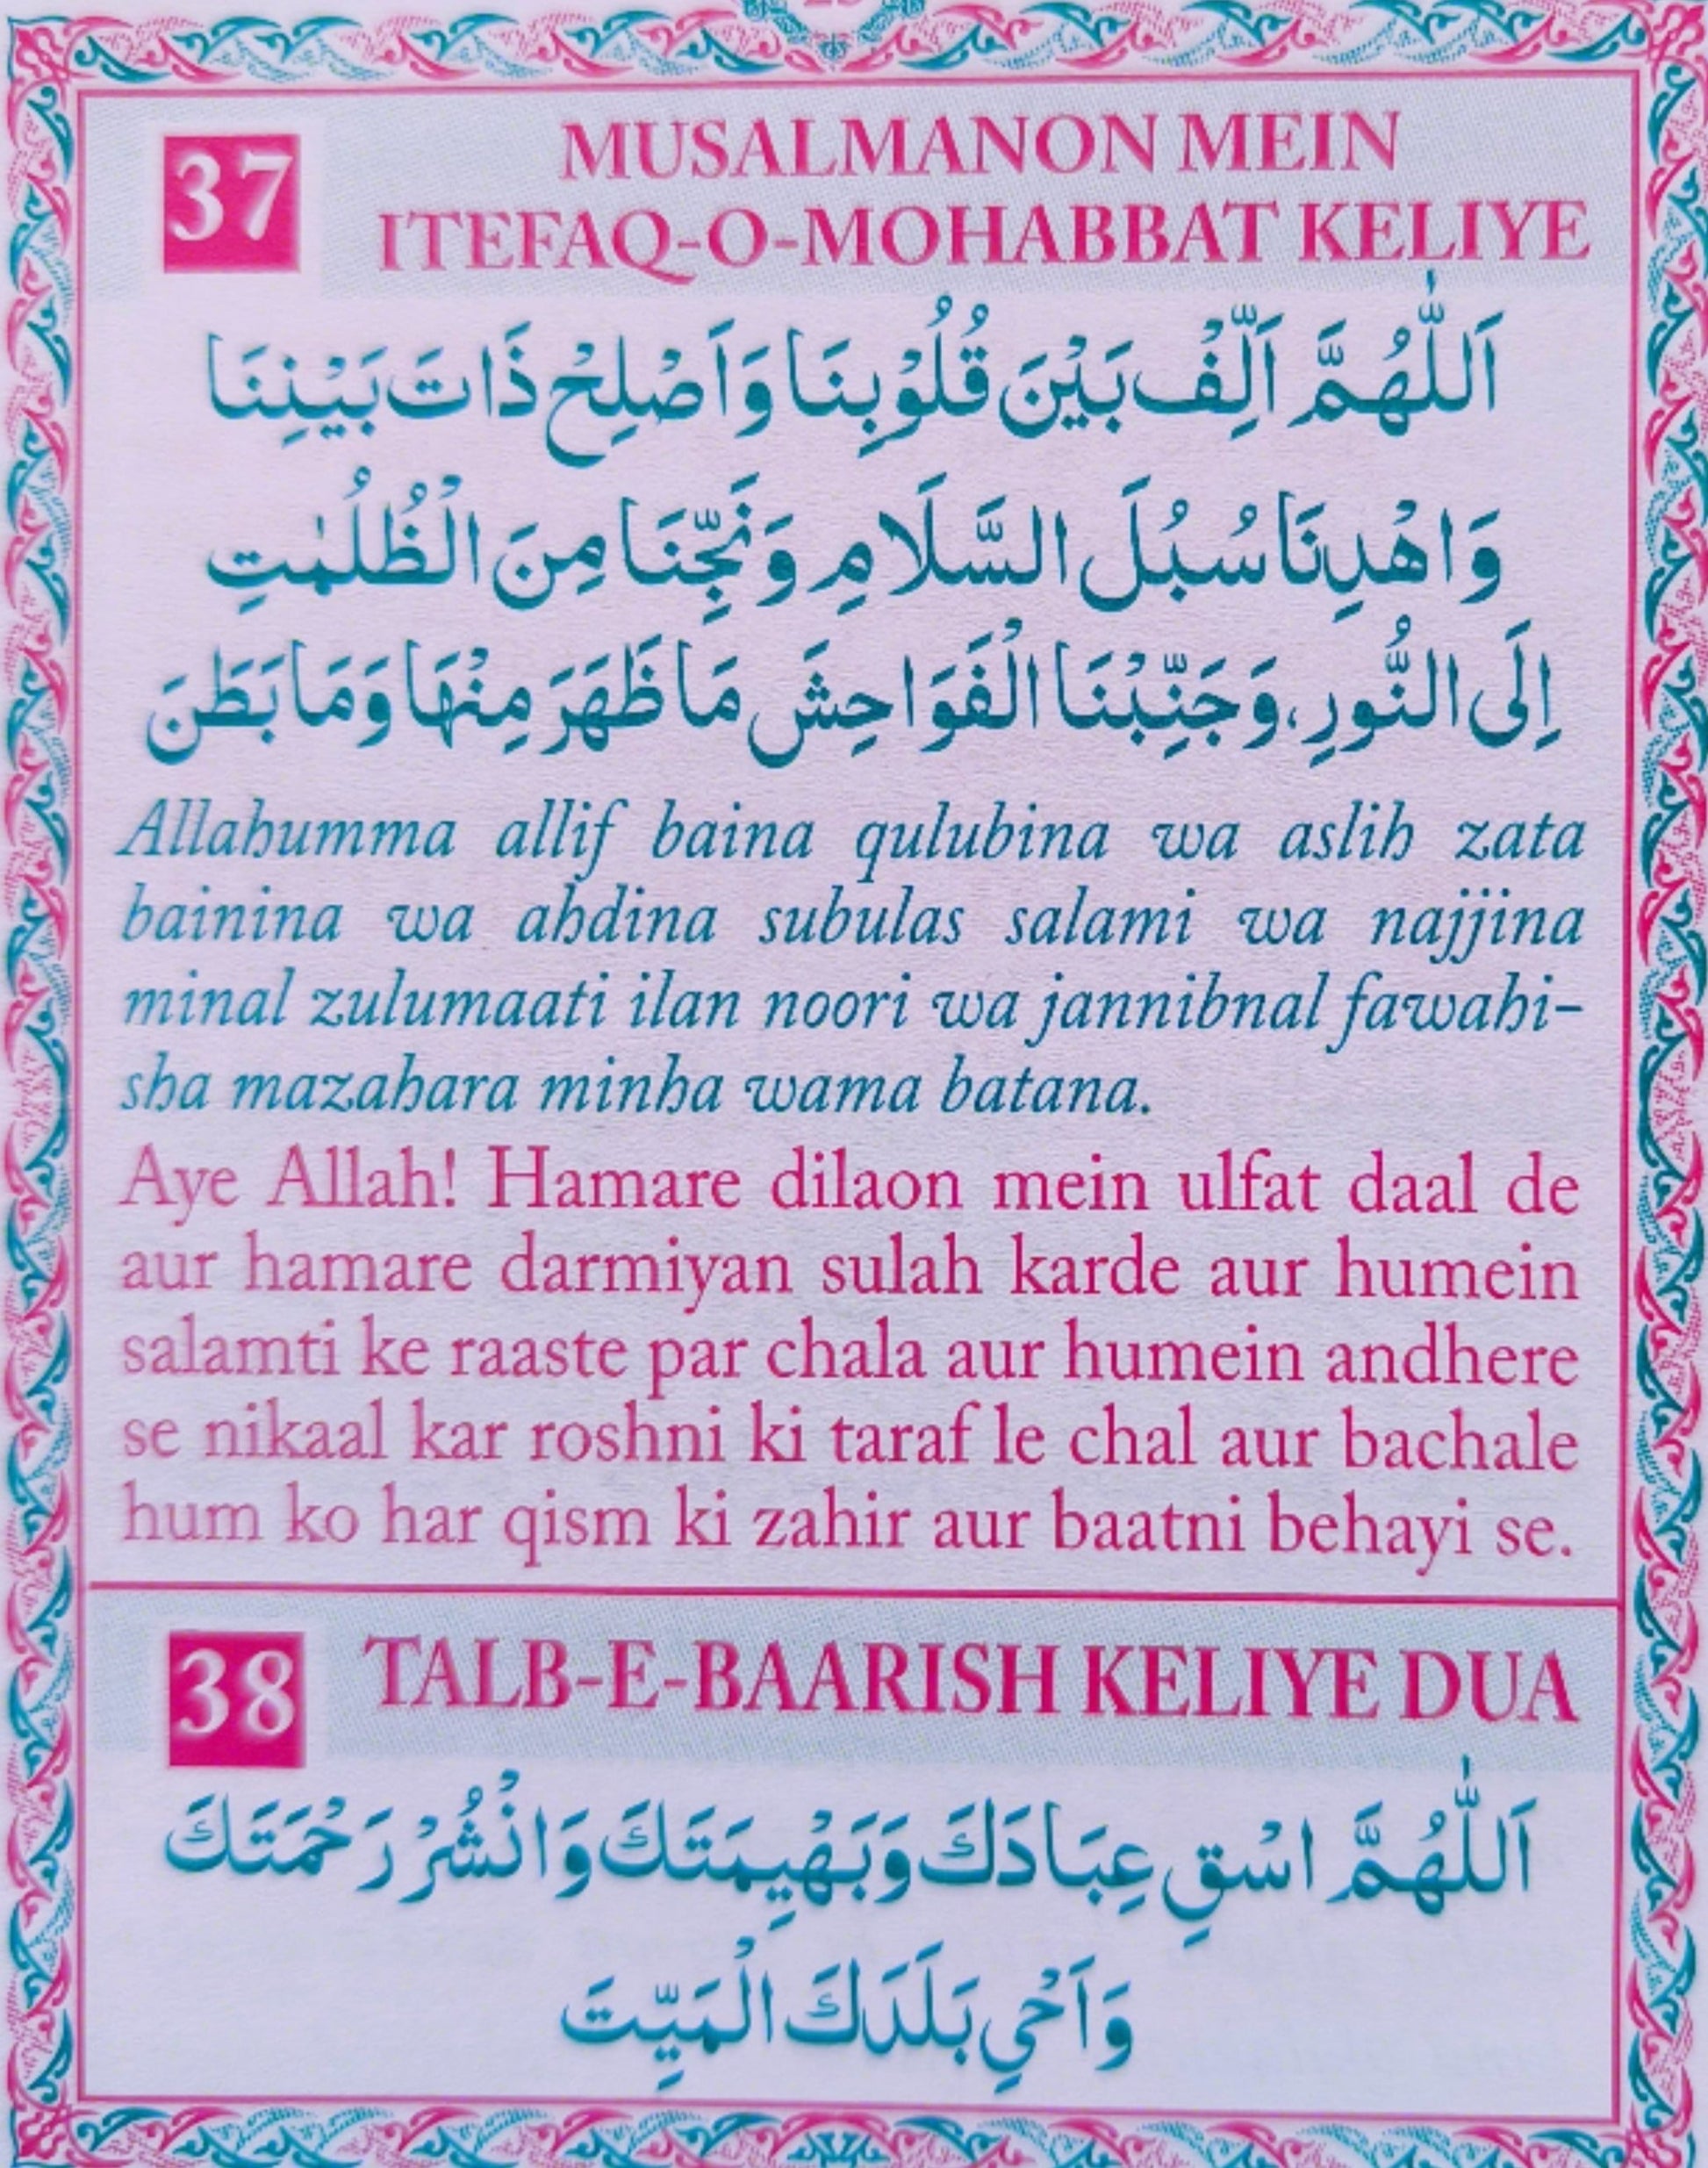 37
MUSALMANON MEIN
ITEFAQ-O-MOHABBAT KELIYE
اَللّٰهُمَّ اَلِّفْ بَيْنَ قُلُوْبِنَا وَاَصْلِحْ ذَاتَ بَيْنِنَا
وَاهْدِنَا سُبُلَ السَّلَامِ وَنَجِّنَا مِنَ الْظُلُمٰتِ
اِلَى النُّورِ، وَجَنِّبْنَا الْفَوَاحِشَ مَا ظَهَرَ مِنْهَا وَمَا بَطَنَ
Allahumma allif baina qulubina wa aslih zata
bainina wa ahdina subulas salami wa najjina
minal zulumaati ilan noori wa jannibnal fawahi-
sha mazahara minha wama batana.
Aye Allah! Hamare dilaon mein ulfat daal de
aur hamare darmiyan sulah karde aur humein
salamti ke raaste par chala aur humein andhere
se nikaal kar roshni ki taraf le chal aur bachale
hum ko har qism ki zahir aur baatni behayi se.
38
TALB-E-BAARISH KELIYE DUA
اَللّٰهُمَّ اسْقِ عِبَادَكَ وَبَهْيِمَتَكَ وَانْشُرْ رَحْمَتَكَ
وَاَحْيِ بَلَدَكَ الْمَيِّتَ